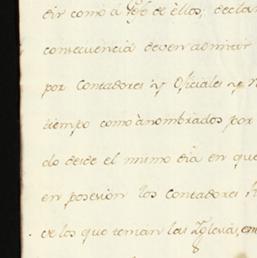 dir como á Xefe de èllos; decla
consecuencia deven admitir
por Contadores y Oficiales y
tiempo como ànombrados por
do desde el mismo dia en que
en posesion los Contadores,
ce los que tenian las Yglesias, en